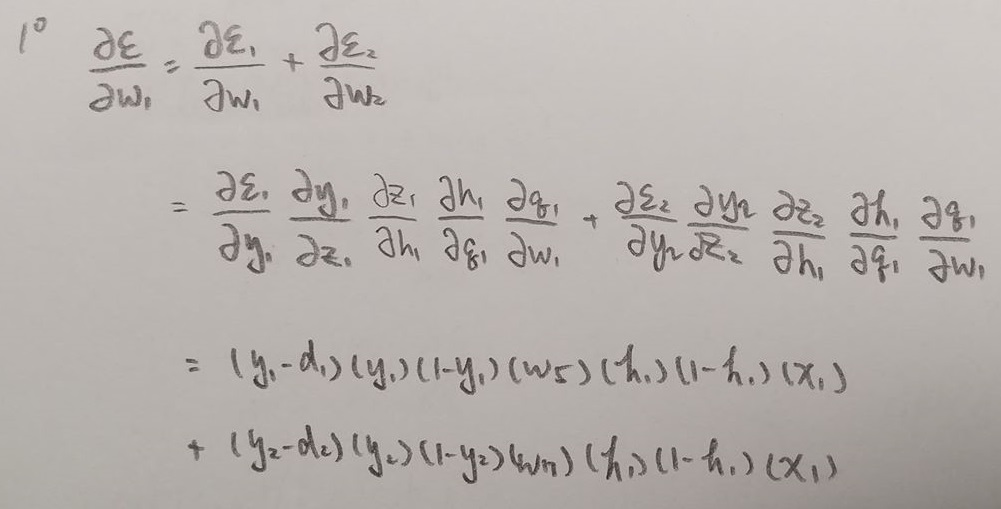 1° ∂ε/∂w₁ = ∂ε₁/∂w₁ + ∂ε₂/∂w₂
= ∂ε₁/∂y₁ ∂y₁/∂z₁ ∂z₁/∂h₁ ∂h₁/∂q₁ ∂q₁/∂w₁ + ∂ε₂/∂y₂ ∂y₂/∂z₂ ∂z₂/∂h₁ ∂h₁/∂q₁ ∂q₁/∂w₁
= (y₁-d₁)(y₁)(1-y₁)(w5)(h₁)(1-h₁)(x₁)
+ (y₂-d₂)(y₂)(1-y₂)(w7)(h₁)(1-h₁)(x₁)